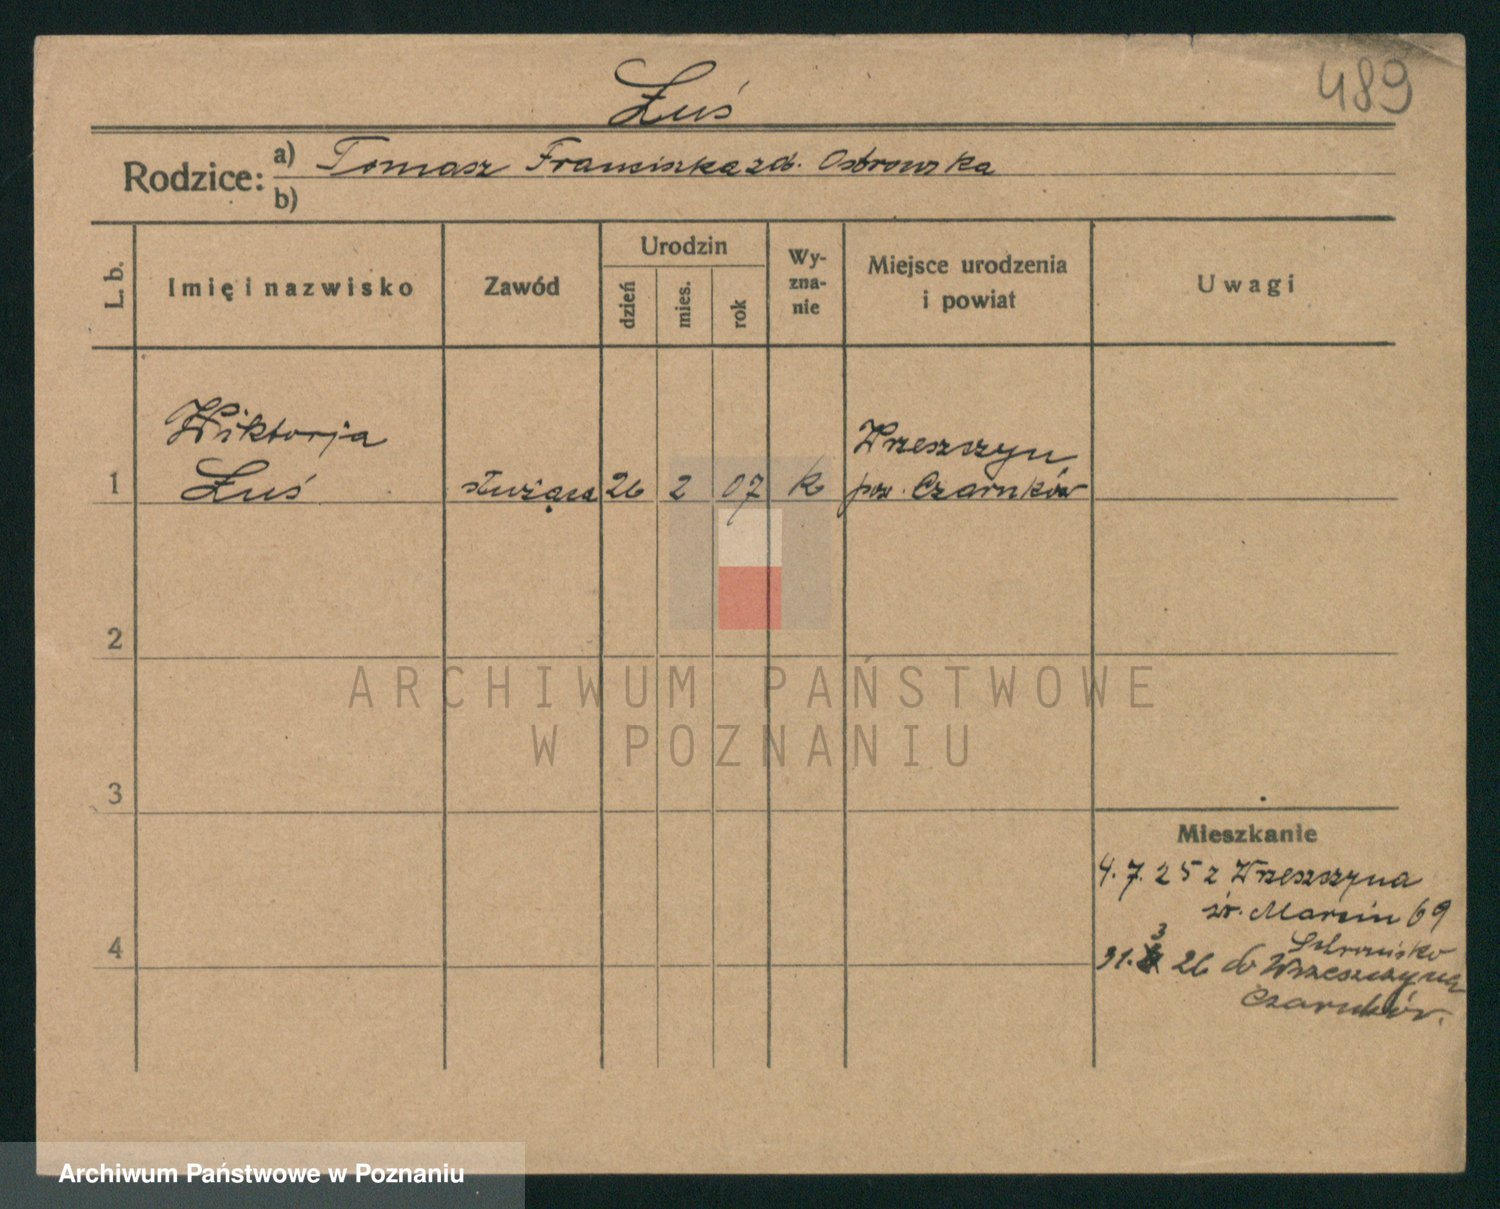 489
Łuś
Rodzice: a) Tomasz Franciszka zd. Ostrowska
b)
L. b.
Imię i nazwisko
Zawód
Urodzin
dzień
mies.
rok
Wy-
zna-
nie
Miejsce urodzenia
i powiat
Uwagi
Wiktorja
Wrzeszczyn
1 Łuś służąca 26 2 07 k pow. Czarnków
2
ARCHIWUM PAŃSTWOWE
W POZNANIU
3
Mieszkanie
4. 7. 25 z Wrzeszczyna
św. Marcin 69
4
31. 3 26 do Wrzeszczyna
Czarnków.
Archiwum Państwowe w Poznaniu